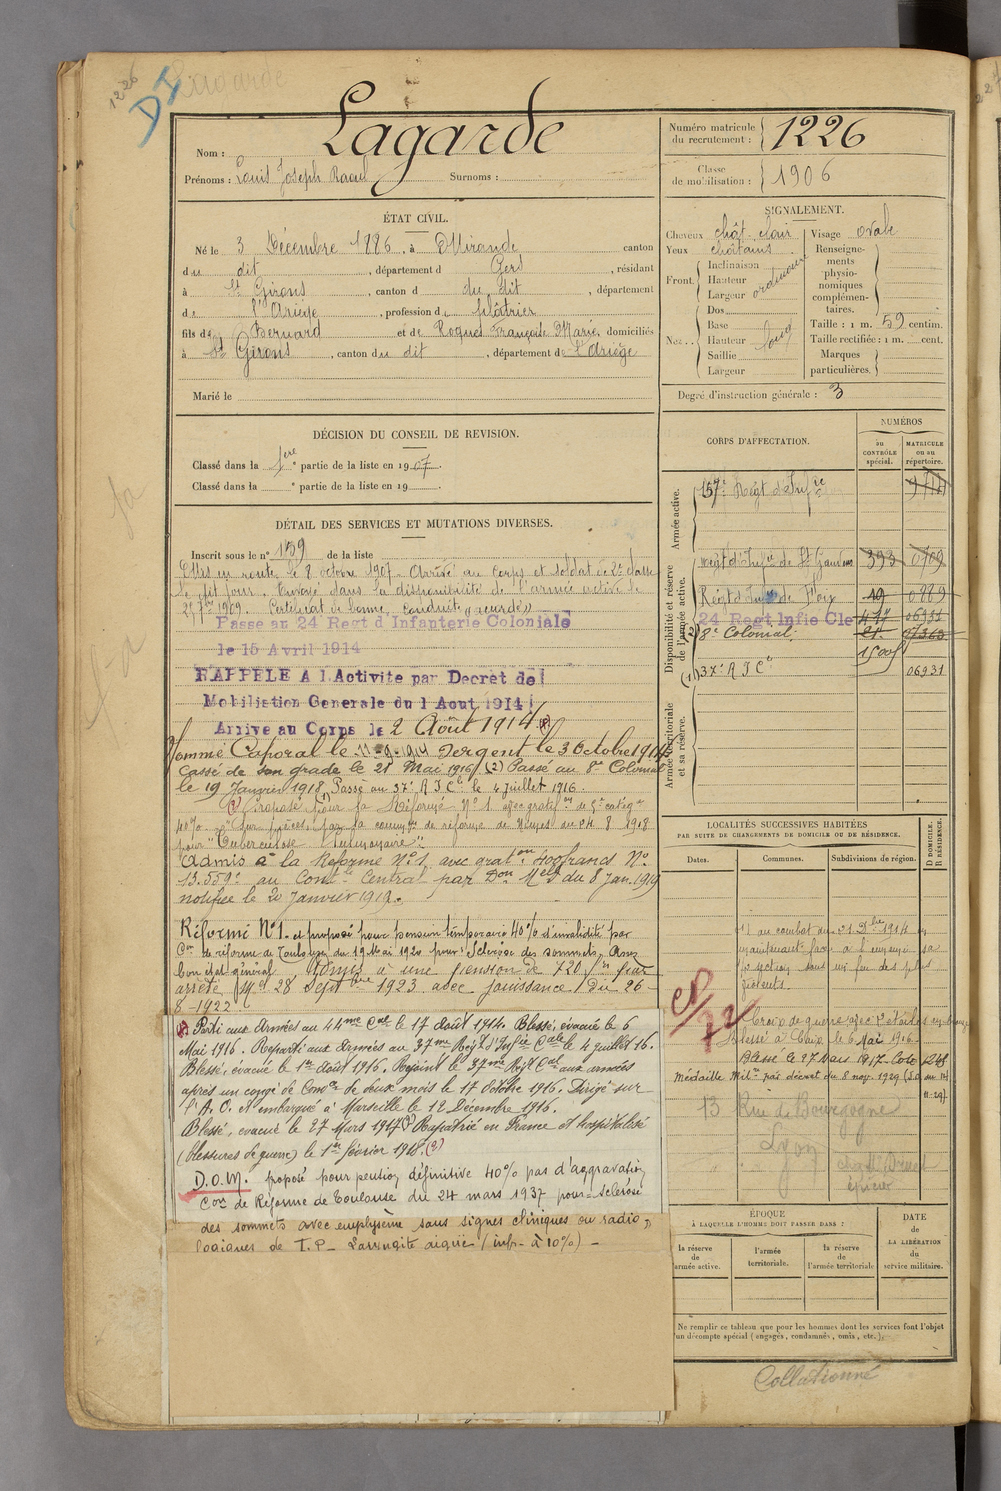 1226
DI
Lagarde
Nom : Lagarde
Prénoms : Louis Joseph Raoul Surnoms :
Numéro matricule du recrutement : 1226
Classe de mobilisation : 1906
ÉTAT CIVIL.
Né le 3 Décembre 1886, à Mirande canton
du dit, département d Gers, résidant
à St Girons, canton d du dit, département
de l'Ariège, profession de plâtrier
fils de Bernard et de Roques Françoise Marie, domiciliés
à St Girons, canton du dit, département de l'Ariège
Marié le
SIGNALEMENT.
Cheveux chât. clair Visage ovale
Yeux châtains
Front. Inclinaison Hauteur Largeur ordinaire
Nez.. Dos Base Hauteur Saillie Largeur long
Renseignements physionomiques complémentaires.
Taille : 1 m. 59 centim.
Taille rectifiée : 1 m. cent.
Marques particulières.
Degré d'instruction générale : 3
DÉCISION DU CONSEIL DE REVISION.
Classé dans la 1ère partie de la liste en 1907.
Classé dans la e partie de la liste en 19
DÉTAIL DES SERVICES ET MUTATIONS DIVERSES.
Inscrit sous le n° 159 de la liste
Mis en route le 8 octobre 1907. Arrivé au corps et soldat de 2e classe
le dit jour. Envoyé dans la disponibilité de l'armée active le
25 7bre 1909. Certificat de bonne conduite "accordé"
Passe au 24 Regt d Infanterie Coloniale
le 15 Avril 1914
RAPPELE A l Activite par Decret de
Mobilistion Generale du 1 Aout 1914
Arrive au Corps le 2 Août 1914
Nommé Caporal le 11-9-1914 Sergent le 3 Octobre 1914
Cassé de son grade le 21 Mai 1916 (2) Passé au 8e Colonial
le 19 Janvier 1918 Passé au 37e R I Cl le 4 Juillet 1916.
(3) Proposé pour la Réforme N° 1 avec gratif on de 5e catég ie
40% sur pièces par la comm on de réforme de Nîmes du 24 8 1918
pour "Tuberculose Pulmonaire".
Admis à la Réforme N° 1, avec grat on 400 francs N°
13.559e au Cont le Central par Don Melle du 8 Jan. 1919
notifiée le 20 Janvier 1919.
Réformé N°1 et proposé pour pension temporaire 40% d'invalidité par
Con de réforme de Toulouse du 19 Mai 1920 pour : Sclérose des sommets, Assez
bon état général. Admis à une pension de 720 frs par
arrêté Mel 28 Septbre 1923 avec jouissance du 26-
8-1922
Parti aux Armées au 44me Cal le 17 Août 1914. Blessé, évacué le 6
Mai 1916. Reparti aux Armées au 37me Regt d'Infie Cale le 4 Juillet 16.
Blessé, évacué le 1er Août 1916. Rejoint le 37me Regt Cal aux armées
après un congé de Conce de deux mois le 17 Octobre 1916. Dirigé sur
l'A. O. et embarqué à Marseille le 12 Décembre 1916.
Blessé, évacué le 27 Mars 1917 Rapatrié en France et hospitalisé
(blessures de guerre) le 1er Février 1918. (3)
D.O.M. proposé pour pension définitive 40% pas d'aggravation
Con de Réforme de Toulouse du 24 mars 1937 pour sclérose
des sommets avec emphysème sans signes cliniques ou radio
logiques de T.P. Laryngite aiguë (inf. à 10%) -
CORPS D'AFFECTATION.
NUMÉROS
au CONTRÔLE spécial.
MATRICULE ou au répertoire.
Armée active.
157e Régt d'Infie
Disponibilité et réserve de l'armée active.
Regt d'Infie de St Gaudens 393 0709
Régt d'Infie de Foix 19 0889
24 Regt Infie Cle 417 06931
(2) 8e Colonial. 21 07363
15005
(1) 37e R I Cl 06931
Armée territoriale et sa réserve.
LOCALITÉS SUCCESSIVES HABITÉES
PAR SUITE DE CHANGEMENTS DE DOMICILE OU DE RÉSIDENCE.
Dates. Communes. Subdivisions de région. D DOMICILE. R RÉSIDENCE.
au combat du 21 Xbre 1914 a
maintenant face à l'ennemi sa
section sous un feu des plus
violents.
Croix de guerre avec
Blessé à le 6 Mai 1916.
Blessé le 27 Mars 1917. Cote 1248
Médaille Milre par décret du 8 nov. 1929 (J.O. du 14-11-29).
13 Rue de Bourgogne
Lyon
épicier
CP/72
ÉPOQUE
À LAQUELLE L'HOMME DOIT PASSER DANS :
la réserve de l'armée active.
l'armée territoriale.
la réserve de l'armée territoriale
DATE de LA LIBÉRATION du service militaire.
Ne remplir ce tableau que pour les hommes dont les services font l'objet
d'un décompte spécial (engagés, condamnés, omis, etc.).
Collationné